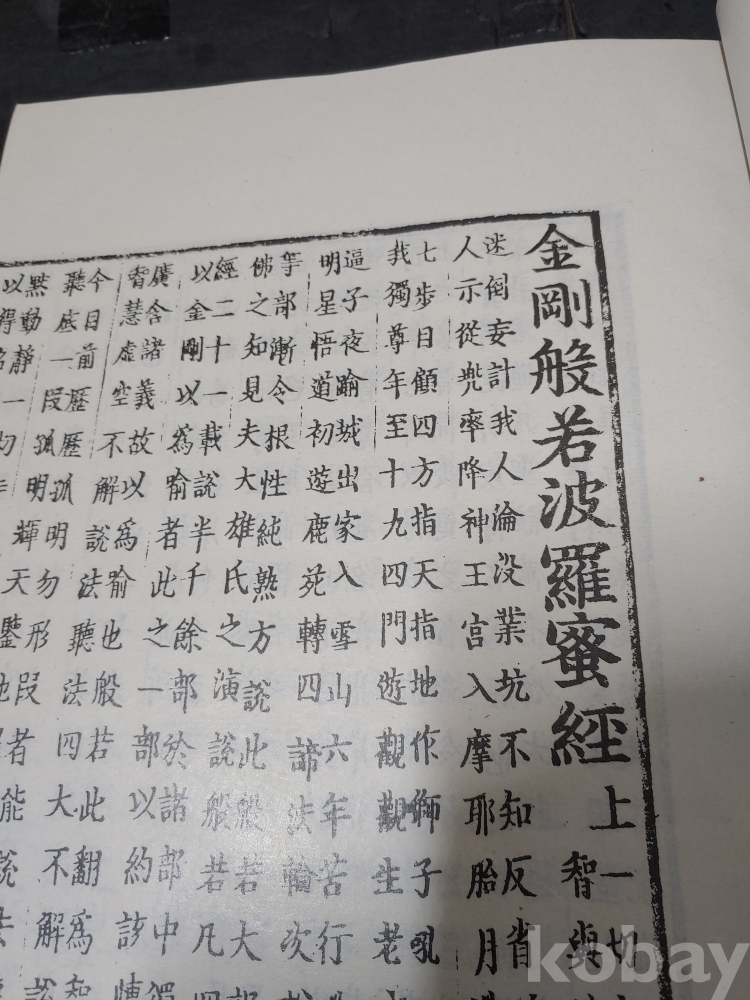 金剛般若波羅蜜經上一切
智與
迷倒妄計我人淪没業坑不知反省
人示從兠率降神王宮入摩耶胎月
七步目顧四方指天指地作獅子吼
我獨尊年至十九四門遊觀觀生老
逼子夜踰城出家入雪山六年苦行
明星悟道初遊鹿苑轉四諦法輪次
等部漸令根性純熟方說此般若大
佛之知見夫大雄氏之演說般若凡四
經二十一載說半千餘部於諸部中獨
以金剛以爲喻者此之一部以約該
廣含諸義故以爲喻也般若此翻爲智
慧虛空不解說法聽法四大不解說
今日前歷歷孤明勿形段者能說法
聽底一段孤明輝天鑒地
黙動靜一切
以得名
kobay